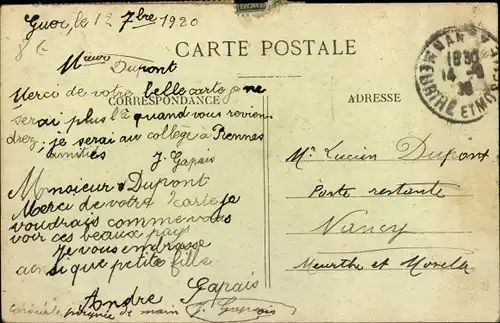 Guer, le 12 7bre 1920
CARTE POSTALE
CORRESPONDANCE
ADRESSE
NANCY
18 30
14 - 9
20
MEURTHE ET MOSELLE
Mieur Dupont
Merci de votre belle carte je ne
serai plus là quand vous revien
drez, je serai au collège à Rennes
amitiés
J. Gapais
Monsieur Dupont
Merci de votre carte je
voudrais comme vous
voir ces beaux pays
Je vous embrasse
ainsi que petite fille
Gapais
André
Cordiale poignée de main J. Gapais
Mr Lucien Dupont
Poste restante
Nancy
Meurthe et Moselle